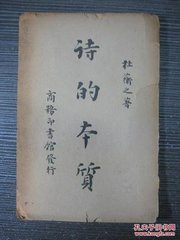 杜衡之著
诗的本質
商務印書館發行